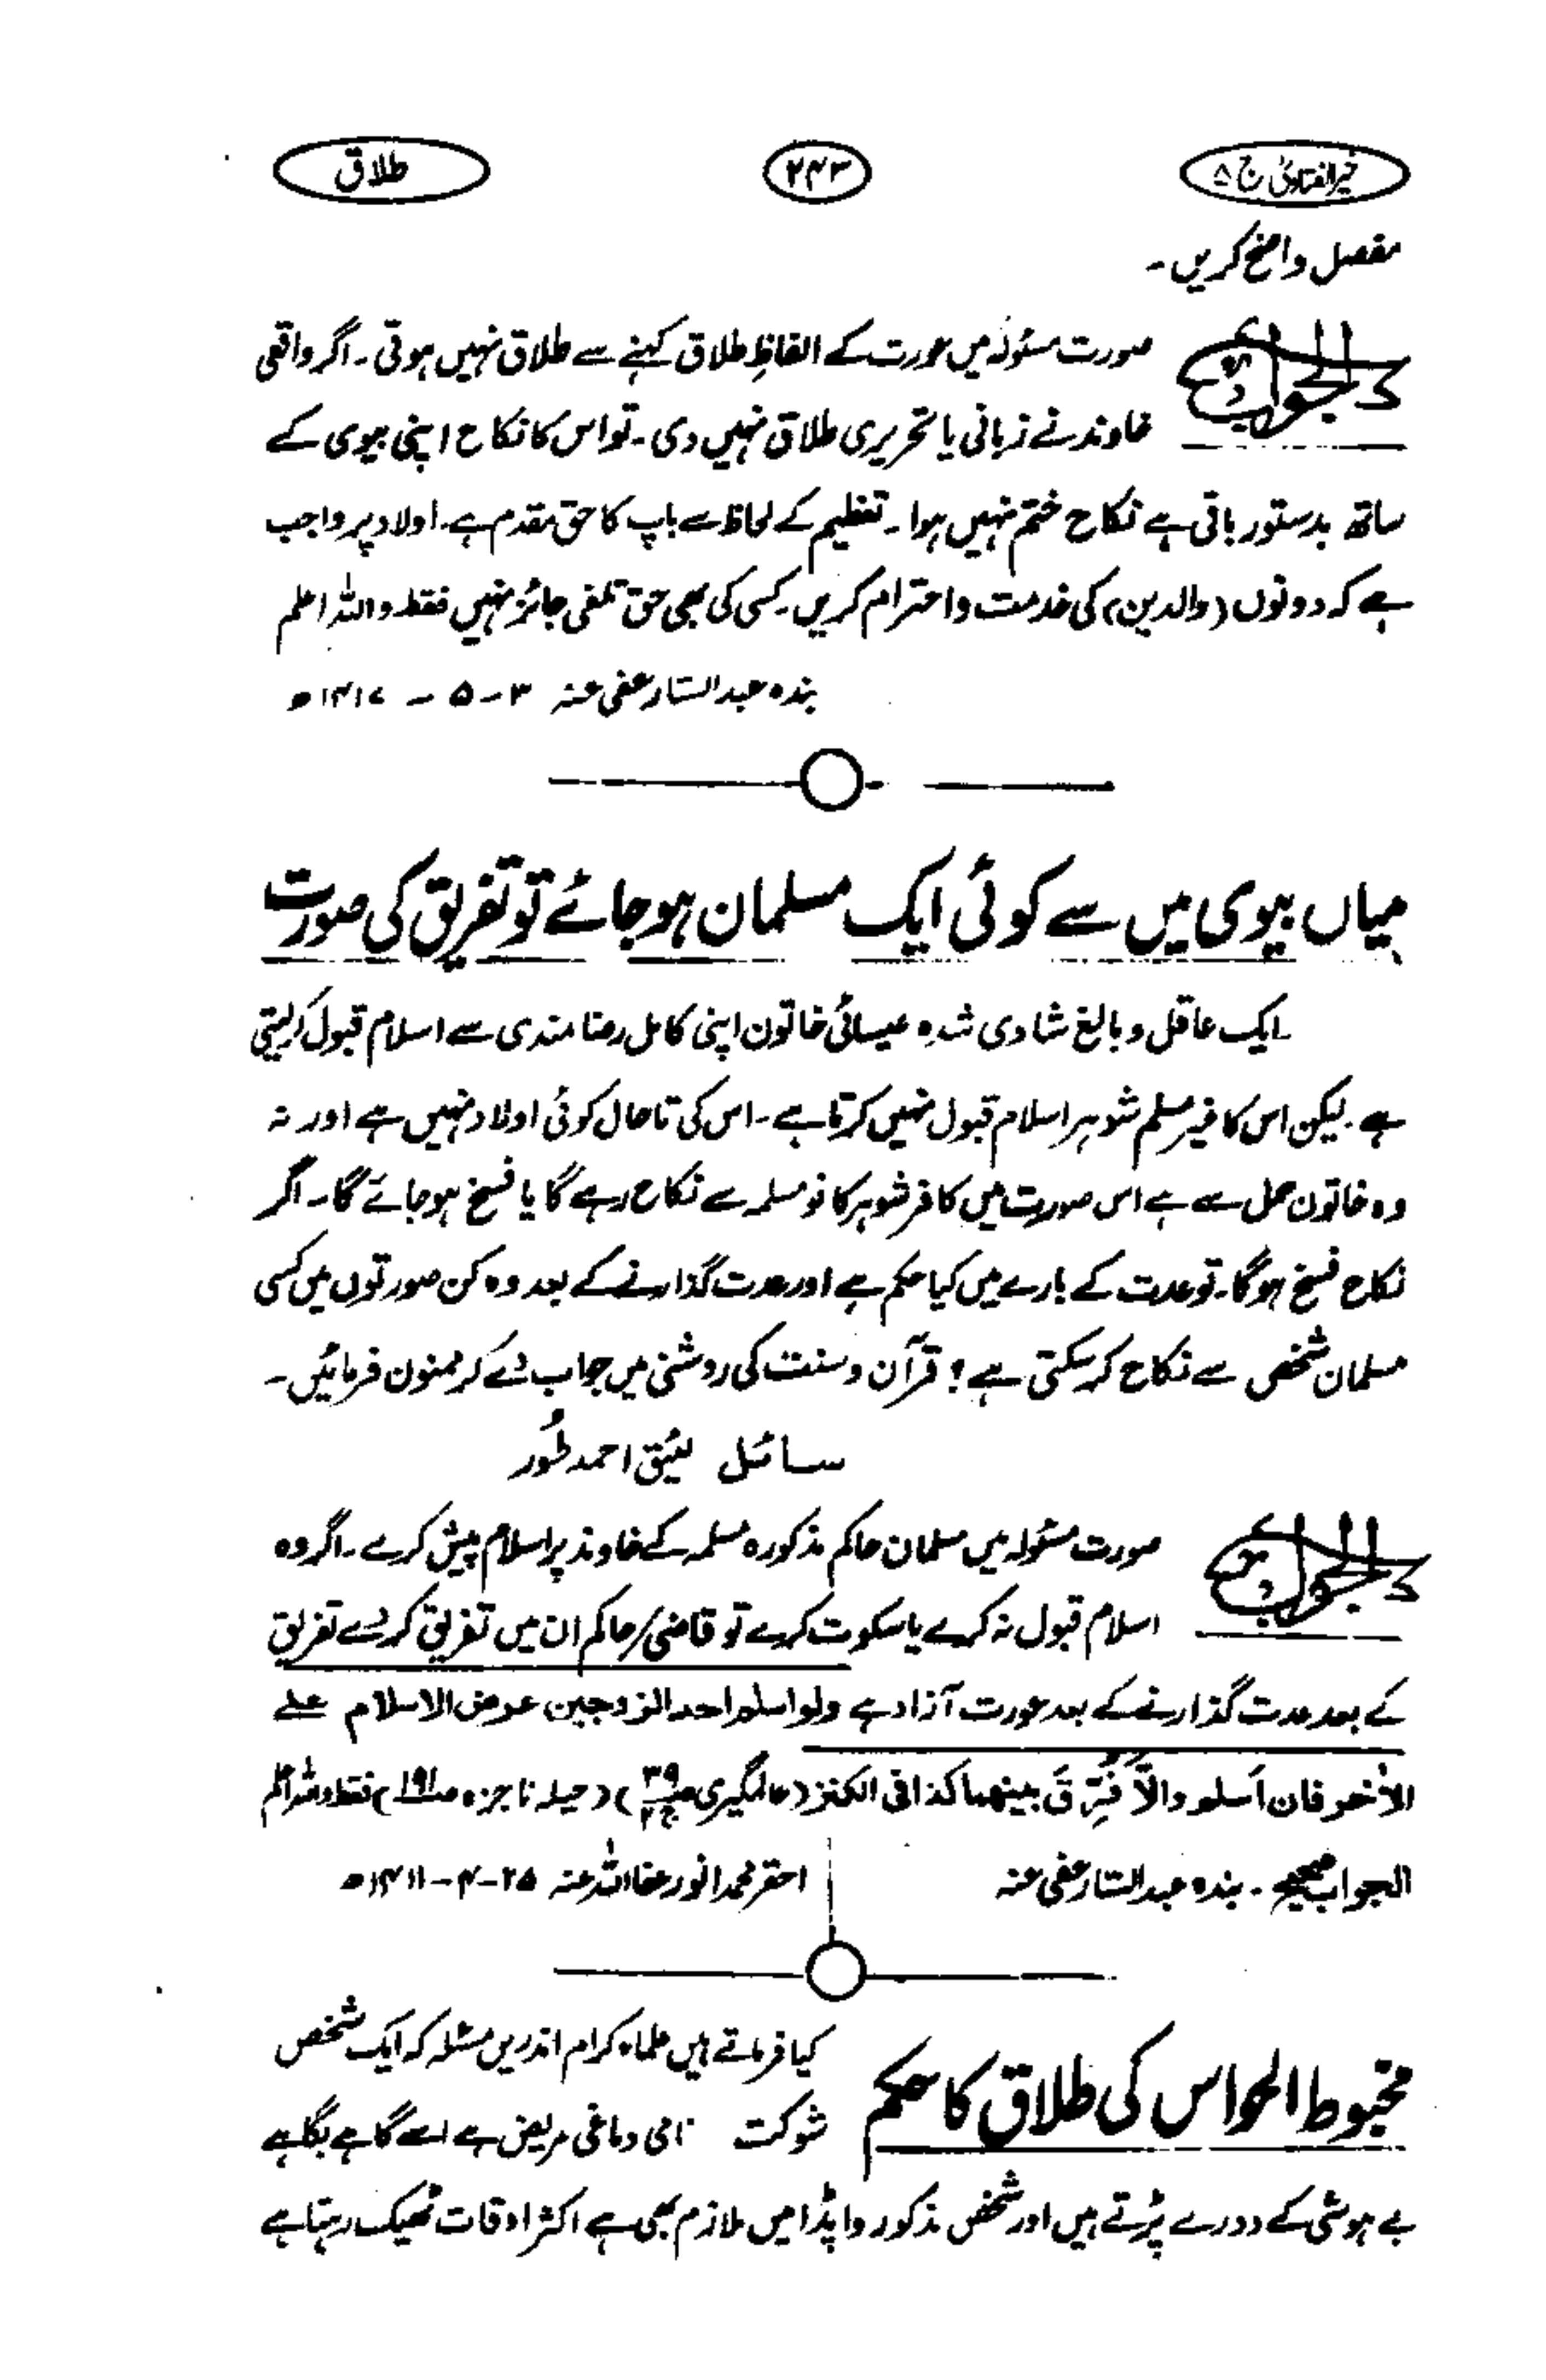 خیر الفتاویٰ ج ۵ ۲۴۳ طلاق
مفصل واضح کریں۔
الجواب صورت مسئولہ میں عورت کے الفاظِ طلاق کہنے سے طلاق نہیں ہوتی۔ اگر واقعی
خاوند نے زبانی یا تحریری طلاق نہیں دی۔ تو اس کا نکاح اپنی بیوی کے
ساتھ بدستور باقی ہے نکاح ختم نہیں ہوا۔ تعظیم کے لحاظ سے باپ کا حق مقدم ہے۔ اولاد پر واجب
ہے کہ دونوں (والدین) کی خدمت و احترام کریں۔ کسی کی بھی حق تلفی جائز نہیں فقط واللہ اعلم
بندہ عبدالستار عفی عنہ ۳-۵-۱۴۱۷ھ
میاں بیوی میں سے کوئی ایک مسلمان ہو جائے تو تفریق کی صورت
ایک عاقل و بالغ شادی شدہ عیسائی خاتون اپنی کامل رضا مندی سے اسلام قبول کرلیتی
ہے۔ لیکن اس کا غیر مسلم شوہر اسلام قبول نہیں کرتا ہے۔ اس کی تاحال کوئی اولاد نہیں ہے اور نہ
وہ خاتون حمل سے ہے اس صورت میں کافر شوہر کا نومسلمہ سے نکاح رہے گا یا فسخ ہو جائے گا۔ اگر
نکاح فسخ ہوگا۔ تو عدت کے بارے میں کیا حکم ہے اور عدت گذارنے کے بعد وہ کن صورتوں میں کسی
مسلمان شخص سے نکاح کر سکتی ہے؟ قرآن و سنت کی روشنی میں جواب دے کر ممنون فرمائیں۔
سائل لئیق احمد طور
الجواب صورت مسئولہ میں مسلمان حاکم مذکورہ مسلمہ کے خاوند پر اسلام پیش کرے۔ اگر وہ
اسلام قبول نہ کرے یا سکوت کرے تو قاضی/حاکم ان میں تفریق کر دے تفریق
کے بعد عدت گذارنے کے بعد عورت آزاد ہے ولو اسلم احد الزوجین عرض الاسلام علی
الاٰخر فان اَسلم والاّ فُرِّقَ بینهما کذا فی الکنز (عالمگیری ص ۳۹ ج ۲) (حیلہ ناجزہ ص۱۹۱) فقط واللہ اعلم
الجواب صحیح۔ بندہ عبدالستار عفی عنہ احقر محمد انور عفا اللہ عنہ ۲۵-۴-۱۴۱۱ھ
مخبوط الحواس کی طلاق کا حکم کیا فرماتے ہیں علماء کرام اندریں مسئلہ کہ ایک شخص
شوکت نامی دماغی مریض ہے اسے گاہے بگاہے
بے ہوشی کے دورے پڑتے ہیں اور شخص مذکور واپڈا میں ملازم بھی ہے اکثر اوقات ٹھیک رہتا ہے